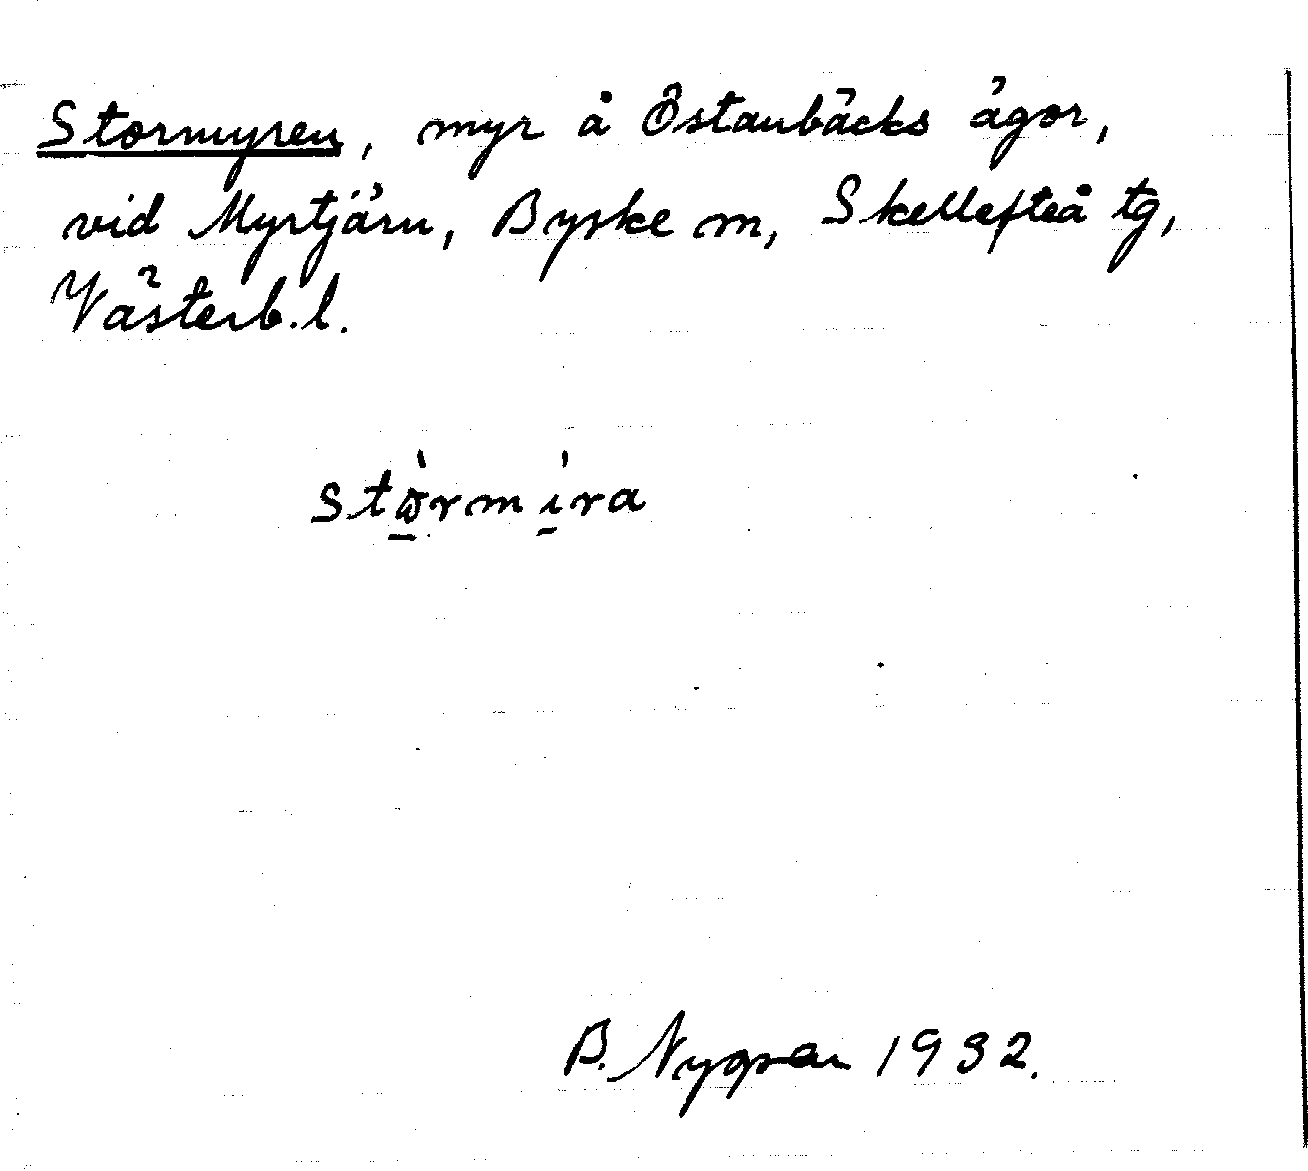 Stormyren, myr å Östanbäcks ägor,
vid Myrtjärn, Byske m, Skellefteå tg,
Västerb.l.
stò̱rmí̱ra
B. Nygren 1932.